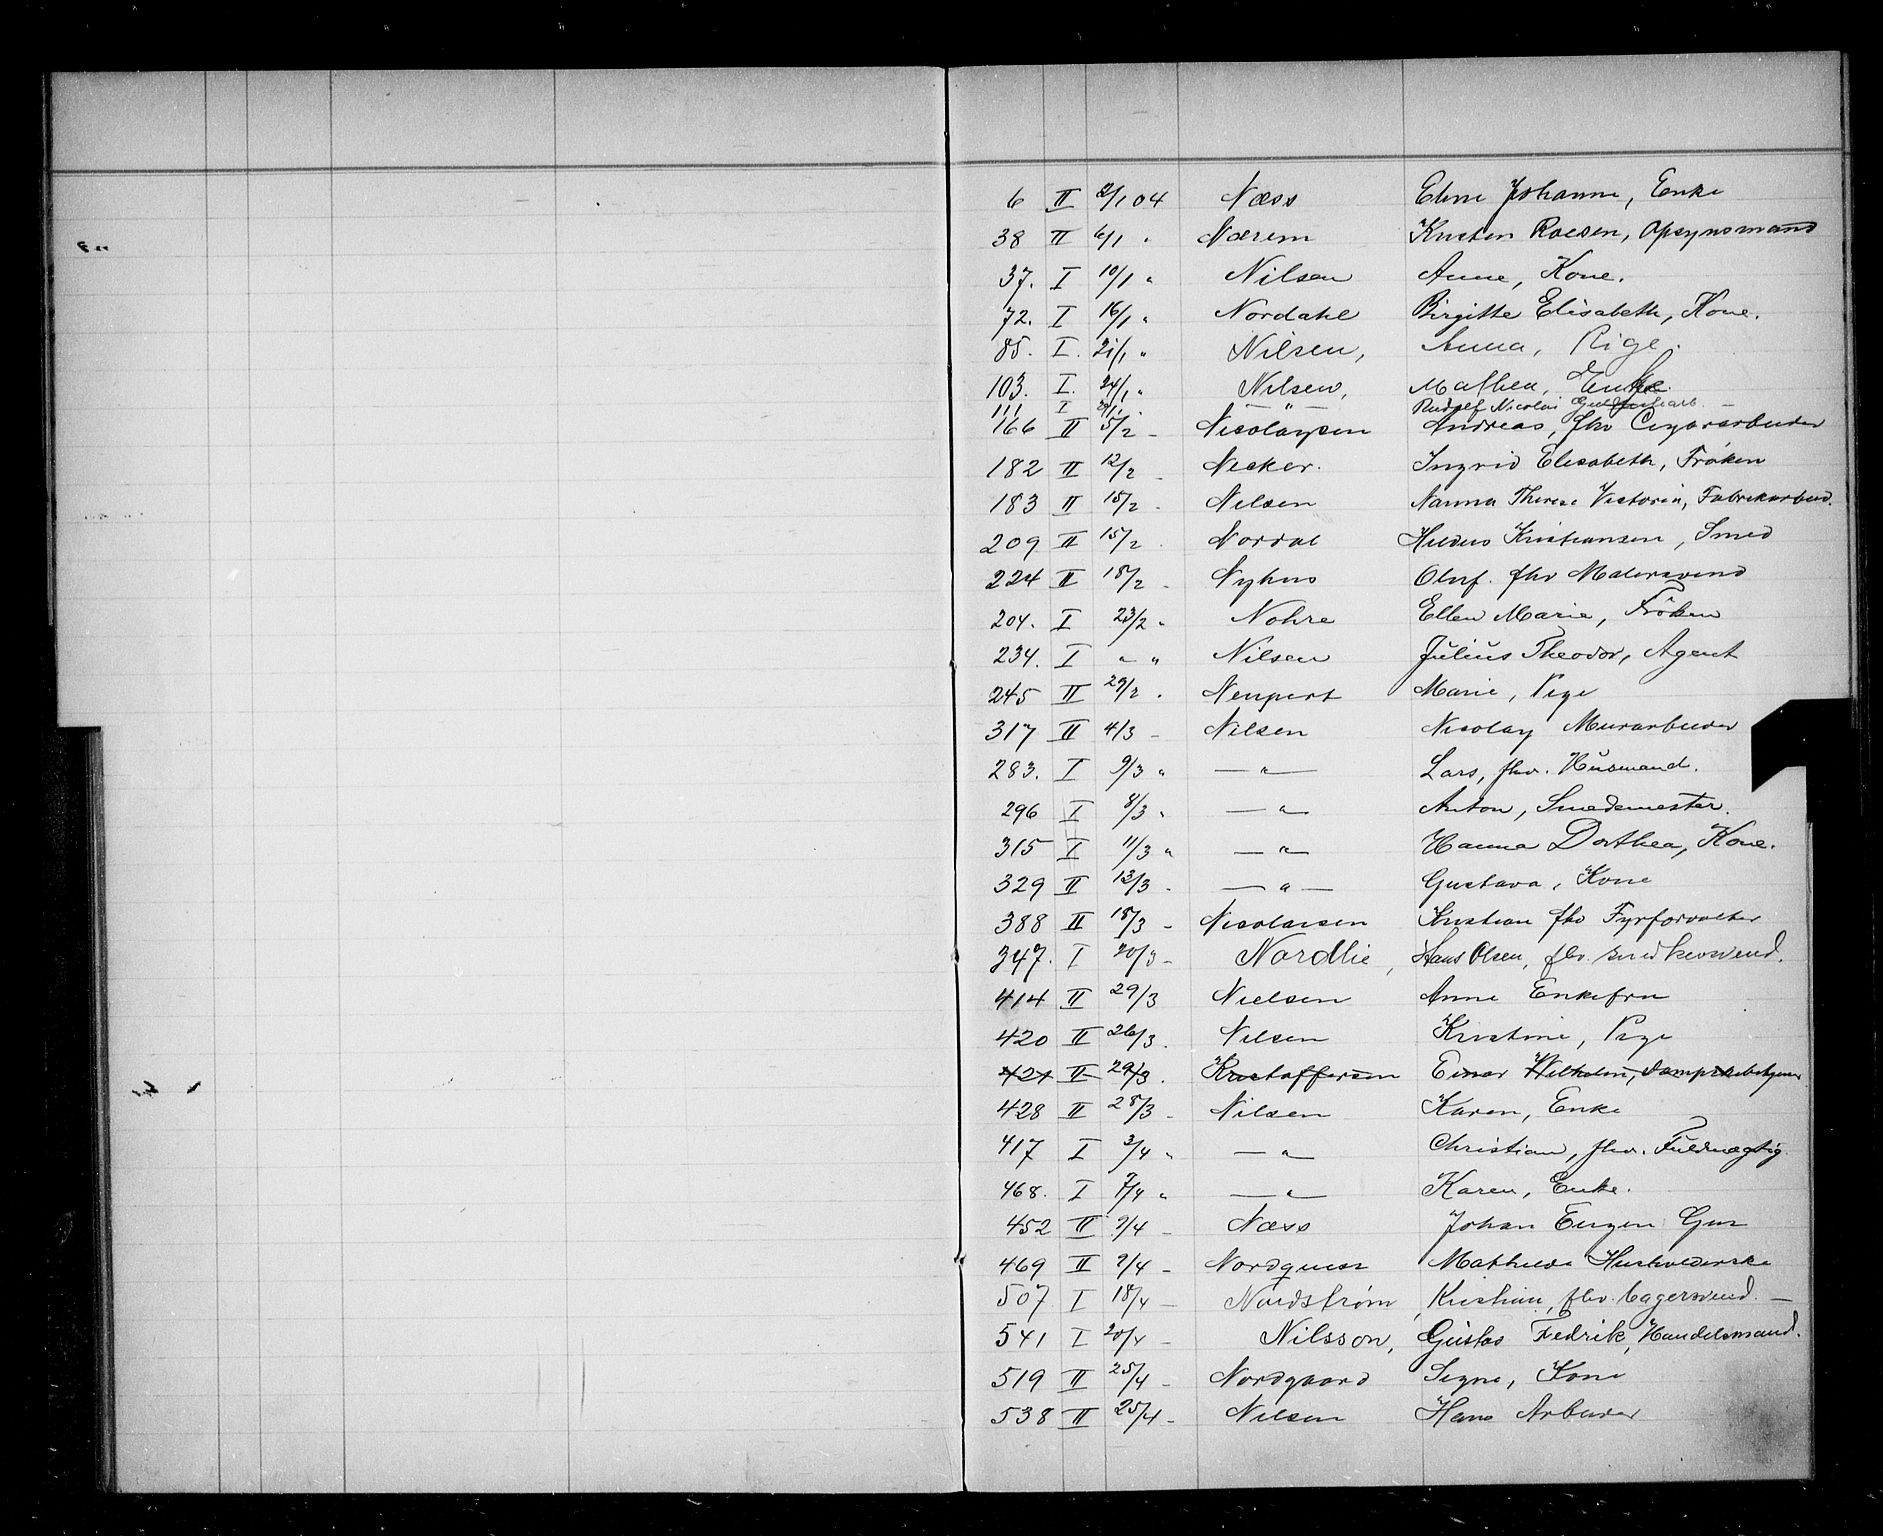 6 II 2/1 04 Næss Eline Johanne, Enke
38 II 6/1 " Nærem Kristen Roesen, Opsynsmand
37. I 10/1 " Nilsen Anne, Kone.
72. I 16/1 " Nordahl Birgitte Elisabeth, Kone.
85. I. 21/1 " Nilsen, Anna, Pige.
103. I. 24/1 " Nilsen, Mathea, Enke.
111 I — " — Rudolf Nicolai
166 II 5/2 - Nicolaysen Andreas, fhv Cigararbeider
182 II 12/2 - Necker. Ingrid Elisabeth, Frøken
183 II 15/2 - Nilsen Nanna Therese Victoria, Fabrikarbeid.
209 II 15/2 - Nordal Hildus Kristiansen, Smed
224 II 18/2 - Nyhus Oluf. fhv Malersvend
204. I 23/2 " Nohre Ellen Marie, Frøken
234. I " " Nilsen Julius Theodor, Agent
245 II 29/2 . Neupert Marie, Pige
317 II 4/3 - Nilsen Nicolay Murarbeider
283. I 9/3 " — " — Lars, fhv. Husmand.
296 I 8/3 " — " — Anton, Smedemester.
315 I 11/3 " — " — Hanna Dorthea, Kone.
329 II 13/3 - — " — Gustava, Kone
388 II 18/3 - Nicolaisen Kristian fhv Fyrforvalter
347. I 20/3 - Nordlie, Hans Olsen, fhv. snedkersvend.
414 II 29/3 Nielsen Anne Enkefru
420 II 26/3. Nilsen Kristine, Pige
421 II 29/3. Kristoffersen Einar Wilhelm,
428 II 28/3 - Nilsen Karen, Enke
417 I 3/4 " — " — Christian, fhv. Fuldmægtig.
468. I 7/4 " — " — Karen, Enke.
452 II 9/4 - Næss Johan Eugen Gut
469 II 9/4 - Nordquist Mathilde Husholderske
507 I 18/4 — Nordstrøm, Kristian, fhv. bagersvend. —
541 I 20/4 - Nilsson, Gustav Fedrik, Handelsmand.
519 II 25/4 - Nordgaard Signe, Kone
538 II 25/4 - Nilsen Hans Arbeider